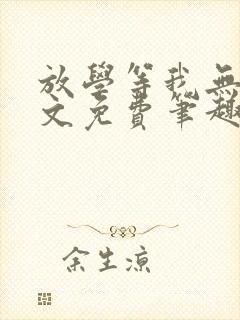 放學等我無
文免費筆趣
余生涼